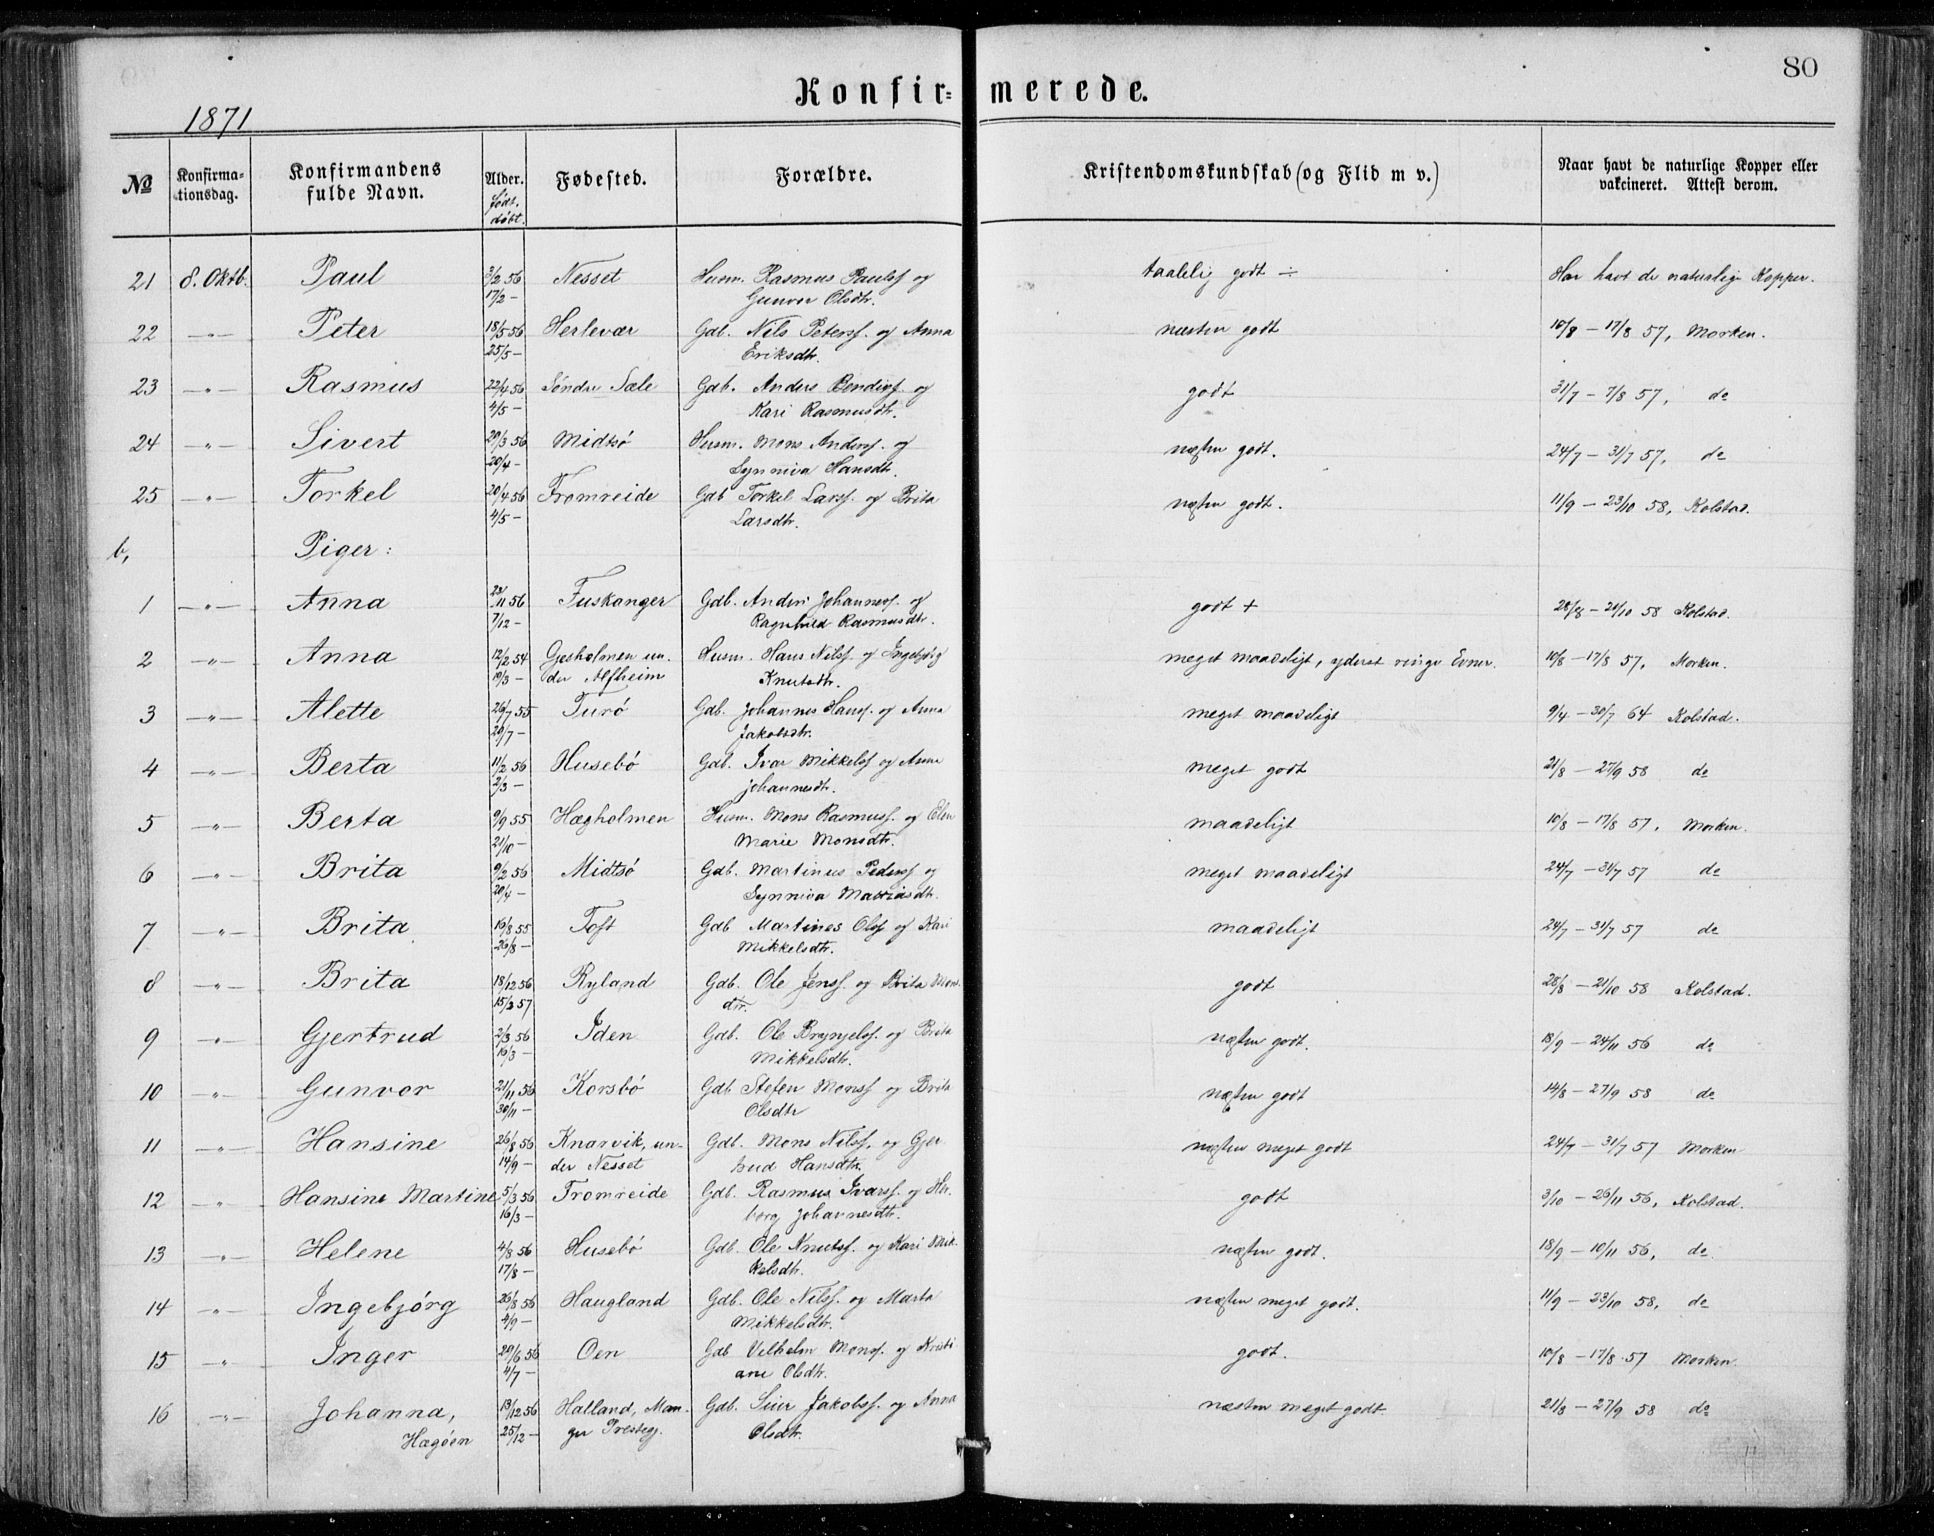 80
Konfirmerede.
1871
№ Konfirmationsdag. Konfirmandens fulde Navn. Alder. Født. døbt. Fødested. Forældre. Kristendomskundskab (og Flid m v.) Naar havt de naturlige Kopper eller vakcineret. Attest derom.
21 8. Oktb. Paul 3/2 56 Nesset Husm. Rasmus Paulsf og taalelig godt ÷ Har havt de naturlige Kopper.
17/2 — Gunvor Olsdtr.
22 —"— Peter 18/5 56 Herlevær Gdb. Nils Petersf. og Anna næsten godt 10/8 — 17/8 57, Morken.
25/5 — Eriksdtr.
23 —"— Rasmus 22/4 56 Söndre Sæle Gdb. Anders Bendixf og godt 31/7 — 7/8 57, do
4/5 — Kari Rasmusdtr.
24 —"— Sivert 29/3 56 Midtsö Husm. Mons Andersf. og næsten godt. 24/7 — 31/7 57, do
20/4 — Synniva Hansdtr.
25 —"— Torkel 20/4 56 Fromreide Gdb Torkel Larsf. og Brita næsten godt. 11/9 — 23/10 58, Kolstad.
4/5 — Larsdtr.
b, Piger:
1 —"— Anna 23/11 56 Fuskanger Gdb. Anders Johannesf. og godt + 28/8 — 21/10 58 Kolstad.
7/12 — Ragnhild Rasmusdtr.
2 —"— Anna 12/2 54 Gjeholmen un- Husm. Hans Nilsf. og Ingebjörg meget maadeligt, yderst ringe Evner. 10/8 — 17/8 57, Morken.
19/3 — der Alfheim Knutsdtr.
3 —"— Alette 26/7 55 Turö Gdb. Johannes Hansf. og Anna meget maadeligt 9/4 — 30/7 64 Kolstad.
29/7 — Jakobsdtr.
4 —"— Berta 11/2 56 Husebö Gdb. Ivar Mikkelsf og Anna meget godt 21/8 — 27/9 58 do
2/3 — Johannesdtr.
5 —"— Berta 9/9 55 Hægholmen Husm. Mons Rasmusf. og Elen maadeligt 10/8 — 17/8 57, Morken.
21/10 — Marie Monsdtr.
6 —"— Brita 9/2 56 Midtsö Gdb. Martinus Pedersf og meget maadeligt 24/7 — 31/7 57 do
20/4 — Synniva Mattiasdtr.
7 —"— Brita 16/8 55 Toft Gdb Martines Olsf og Kari maadeligt 24/7 — 31/7 57 do
26/8 — Mikkelsdtr.
8 —"— Brita 18/12 56 Ryland Gdb. Ole Jensf. og Brita Mons- godt 28/8 — 21/10 58 Kolstad.
15/3 57 dtr.
9 —"— Gjertrud 2/3 56 Iden Gdb. Ole Brynjelsf. og Brita næsten godt. 18/9 — 24/11 56 do
16/3 — Mikkelsdtr.
10 —"— Gunvor 21/11 56 Korsbö Gdb Stefen Monsf og Brita næsten godt 14/8 — 27/9 58 do
30/11 — Olsdtr
11 —"— Hansine 26/8 56 Knarvik, un- Gdb. Mons Nilsf. og Gjer næsten meget godt 24/7 — 31/7 57 Morken
14/9 — der Nesset trud Hansdtr.
12 —"— Hansine Martine 5/3 56 Fromreide Gdb. Rasmus Ivarsf. og Her godt 3/10 — 26/11 56, Kolstad.
16/3 — borg Johannesdtr.
13 —"— Helene 4/8 56 Husebö Gdb. Ole Knutsf. og Kari Mik- næsten godt. 18/9 — 10/11 56, do
17/8 — kelsdtr.
14 —"— Ingebjörg 26/8 56 Haugland Gdb. Ole Nilsf. og Marta næsten meget godt. 11/9 — 23/10 58, do
4/9 — Mikkelsdtr.
15 —"— Inger 29/6 56 Oen Gdb Vilhelm Monsf. og Kristi godt. 10/8 — 17/8 57 Morken.
4/7 — ane Olsdtr.
16 —"— Johanna, 13/12 56 Halland, Man- Gdb. Siur Jakobsf. og Anna næsten meget godt 21/8 — 27/9 58 do
Hægöen 25/12 — ger Prestegj. Olsdtr.